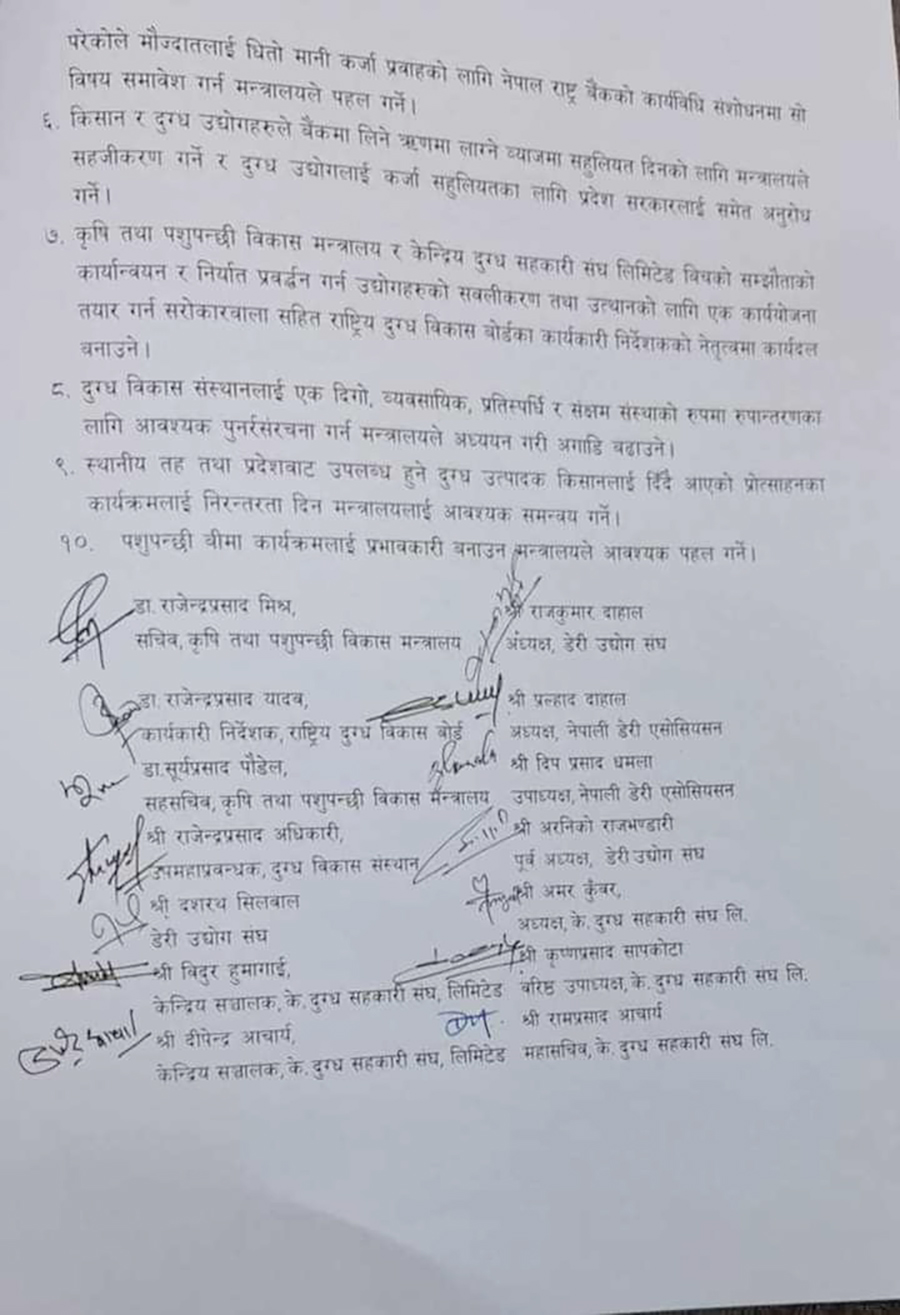 परेकोले मौज्दातलाई धितो मानी कर्जा प्रवाहको लागि नेपाल राष्ट्र बैंकको कार्यविधि संशोधनमा सो
विषय समावेश गर्न मन्त्रालयले पहल गर्ने।
६. किसान र दुग्ध उद्योगहरुले बैंकमा लिने ऋणमा लाग्ने व्याजमा सहुलियत दिनको लागि मन्त्रालयले
सहजीकरण गर्ने र दुग्ध उद्योगलाई कर्जा सहुलियतका लागि प्रदेश सरकारलाई समेत अनुरोध
गर्ने।
७. कृषि तथा पशुपन्छी विकास मन्त्रालय र केन्द्रिय दुग्ध सहकारी संघ लिमिटेड विचको सम्झौताको
कार्यान्वयन र निर्यात प्रवर्द्धन गर्न उद्योगहरुको सवलीकरण तथा उत्थानको लागि एक कार्ययोजना
तयार गर्न सरोकारवाला सहित राष्ट्रिय दुग्ध विकास बोर्डका कार्यकारी निर्देशकको नेतृत्वमा कार्यदल
वनाउने।
८. दुग्ध विकास संस्थानलाई एक दिगो, व्यवसायिक, प्रतिस्पर्धि र सक्षम संस्थाको रुपमा रुपान्तरणका
लागि आवश्यक पुनर्रसंरचना गर्न मन्त्रालयले अध्ययन गरी अगाडि वढाउने।
९. स्थानीय तह तथा प्रदेशवाट उपलब्ध हुने दुग्ध उत्पादक किसानलाई दिँदै आएको प्रोत्साहनका
कार्यक्रमलाई निरन्तरता दिन मन्त्रालयलाई आवश्यक समन्वय गर्ने।
१०. पशुपन्छी वीमा कार्यक्रमलाई प्रभावकारी बनाउन मन्त्रालयले आवश्यक पहल गर्ने।
डा. राजेन्द्रप्रसाद मिश्र, श्री राजकुमार दाहाल
सचिव, कृषि तथा पशुपन्छी विकास मन्त्रालय अध्यक्ष, डेरी उद्योग संघ
डा. राजेन्द्रप्रसाद यादव, श्री प्रल्हाद दाहाल
कार्यकारी निर्देशक, राष्ट्रिय दुग्ध विकास बोर्ड अध्यक्ष, नेपाली डेरी एसोसियसन
डा.सूर्यप्रसाद पौडेल, श्री दिप प्रसाद धमला
सहसचिव, कृषि तथा पशुपन्छी विकास मन्त्रालय उपाध्यक्ष, नेपाली डेरी एसोसियसन
श्री राजेन्द्रप्रसाद अधिकारी, श्री अरनिको राजभण्डारी
उपमहाप्रवन्धक, दुग्ध विकास संस्थान पूर्व अध्यक्ष, डेरी उद्योग संघ
श्री दशरथ सिलवाल श्री अमर कुँवर,
डेरी उद्योग संघ अध्यक्ष, के. दुग्ध सहकारी संघ लि.
श्री विदुर हुमागाई, श्री कृष्णप्रसाद सापकोटा
केन्द्रिय सञ्चालक, के. दुग्ध सहकारी संघ, लिमिटेड वरिष्ठ उपाध्यक्ष, के. दुग्ध सहकारी संघ लि.
श्री दीपेन्द्र आचार्य, श्री रामप्रसाद आचार्य
केन्द्रिय सञ्चालक, के. दुग्ध सहकारी संघ, लिमिटेड महासचिव, के. दुग्ध सहकारी संघ लि.